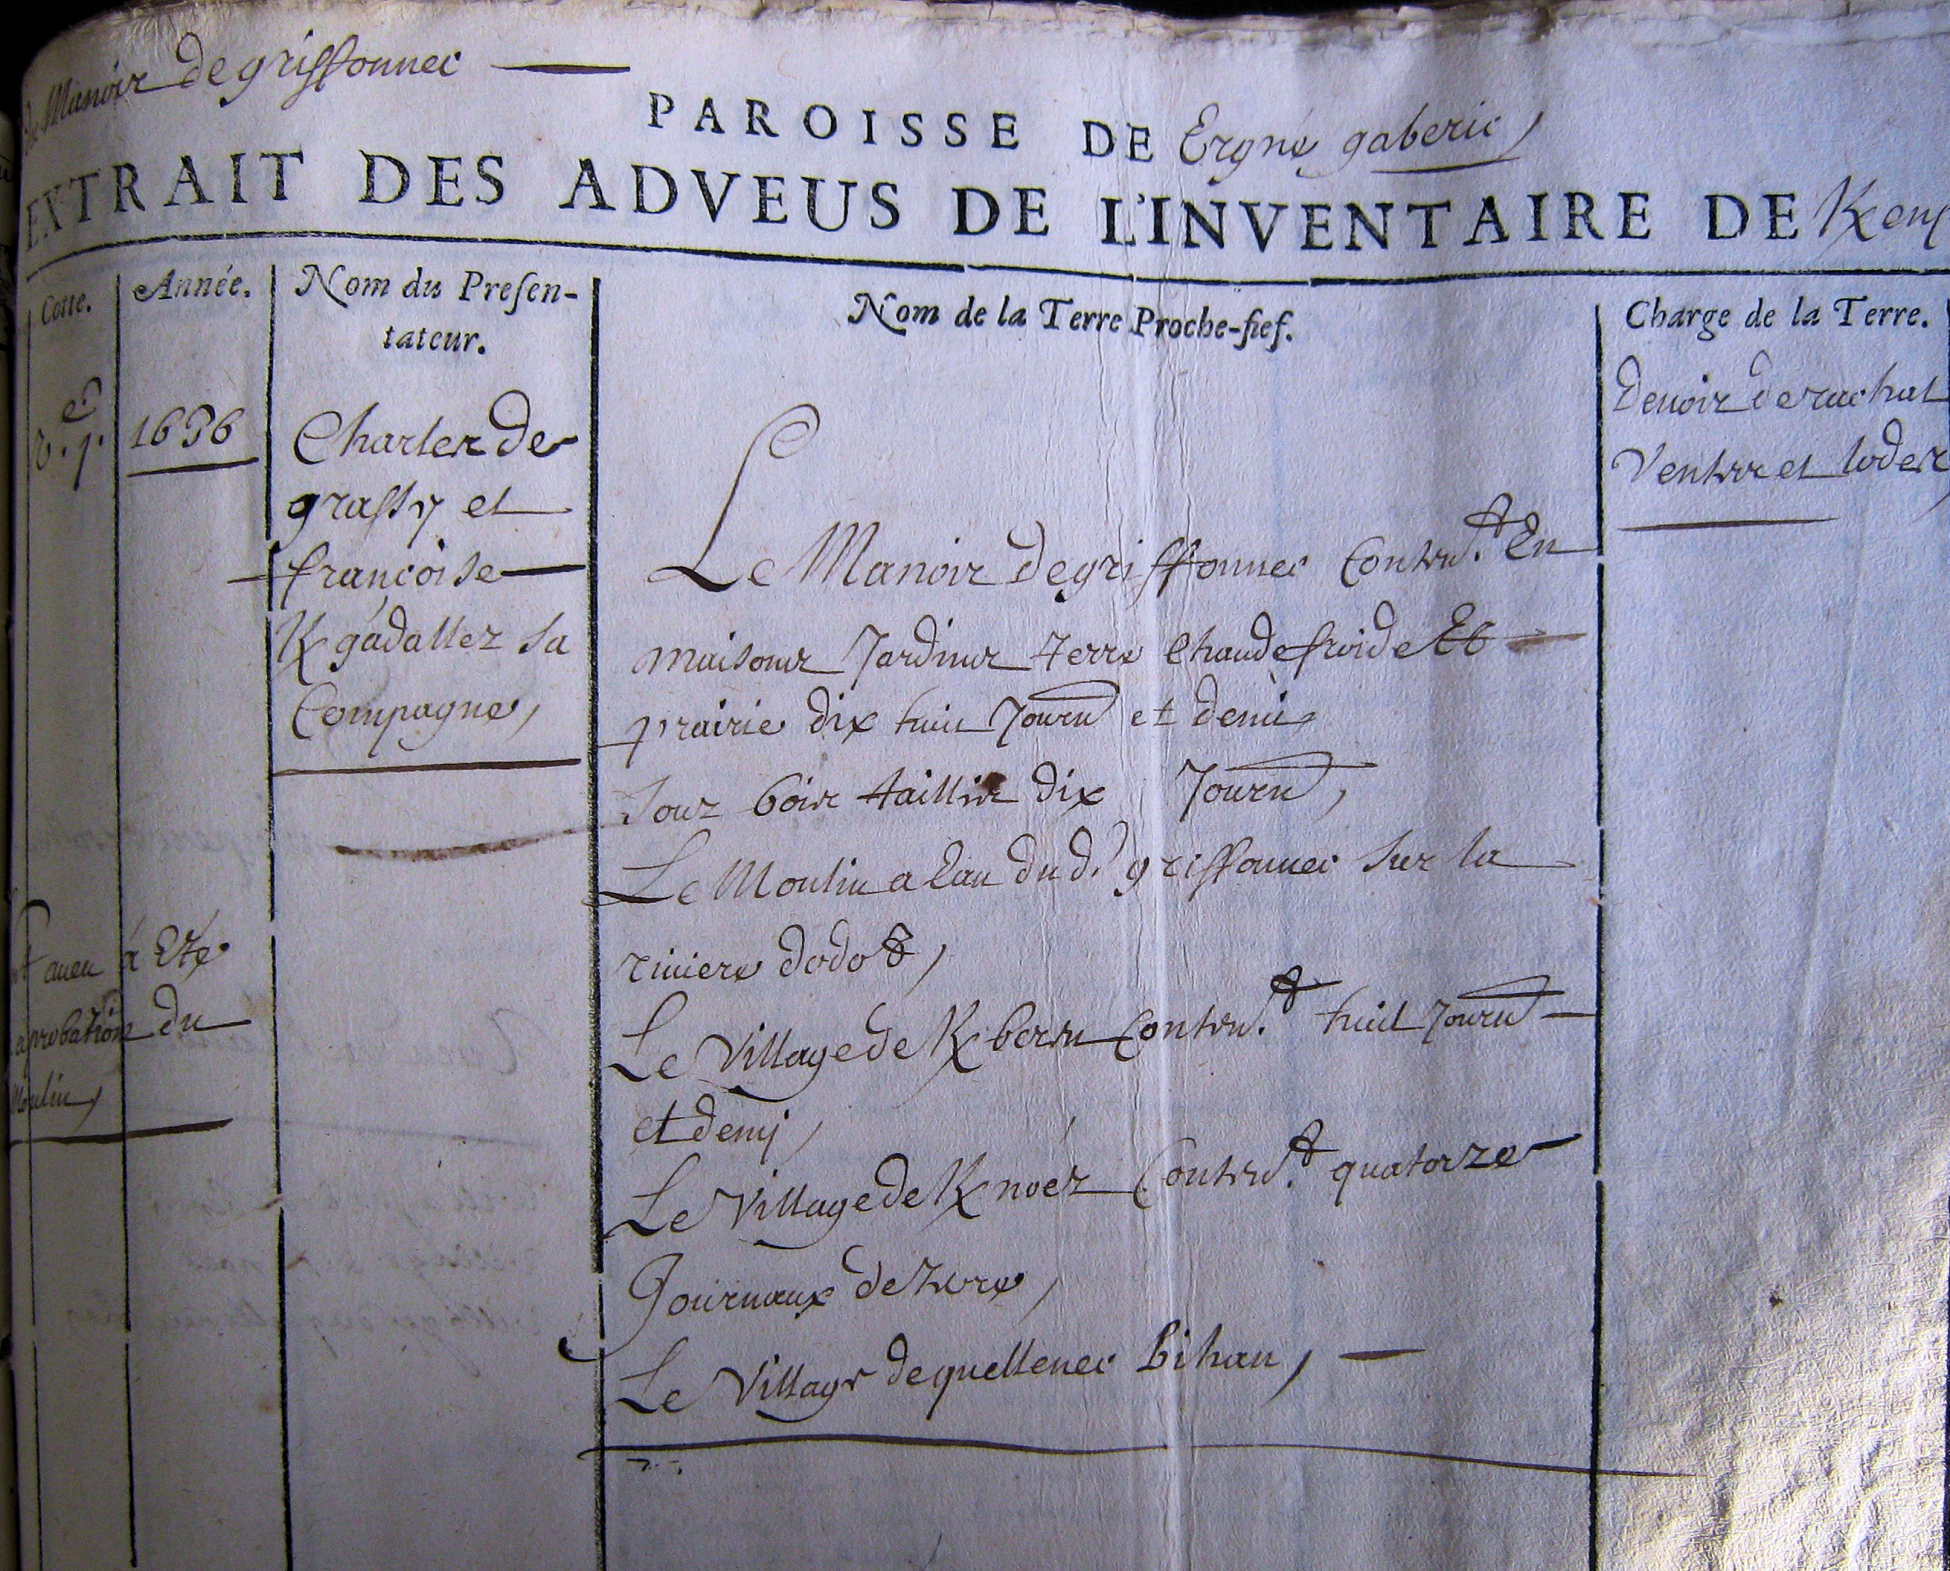 Manoir de griffonnec
PAROISSE DE Ergue gaberic,
EXTRAIT DES ADVEUS DE L'INVENTAIRE DE
Cotte.
Année.
Nom du Presen-
tateur.
Nom de la Terre Proche-fief.
Charge de la Terre.
1636
Charles de
grassy et
françoise
K gadallez sa
Compagne,
Le Manoir de griffonnec Conten.t En
maisons Jardins terre Chaude froide Et
prairie dix huit Journ et demi
Souz bois taillis dix Journ,
Le Moulin a Eau du d. griffonnec sur la
riviere dodet,
Le Village de K bern Conten.t huit Journ
et demj,
Le Village de K noez Conten.t quatorze
Journaux de terre,
Le Village de quellenec bihan,
Devoir de rachat
Ventes et lodes
aveu a Eté
aprobation du
Moulin,